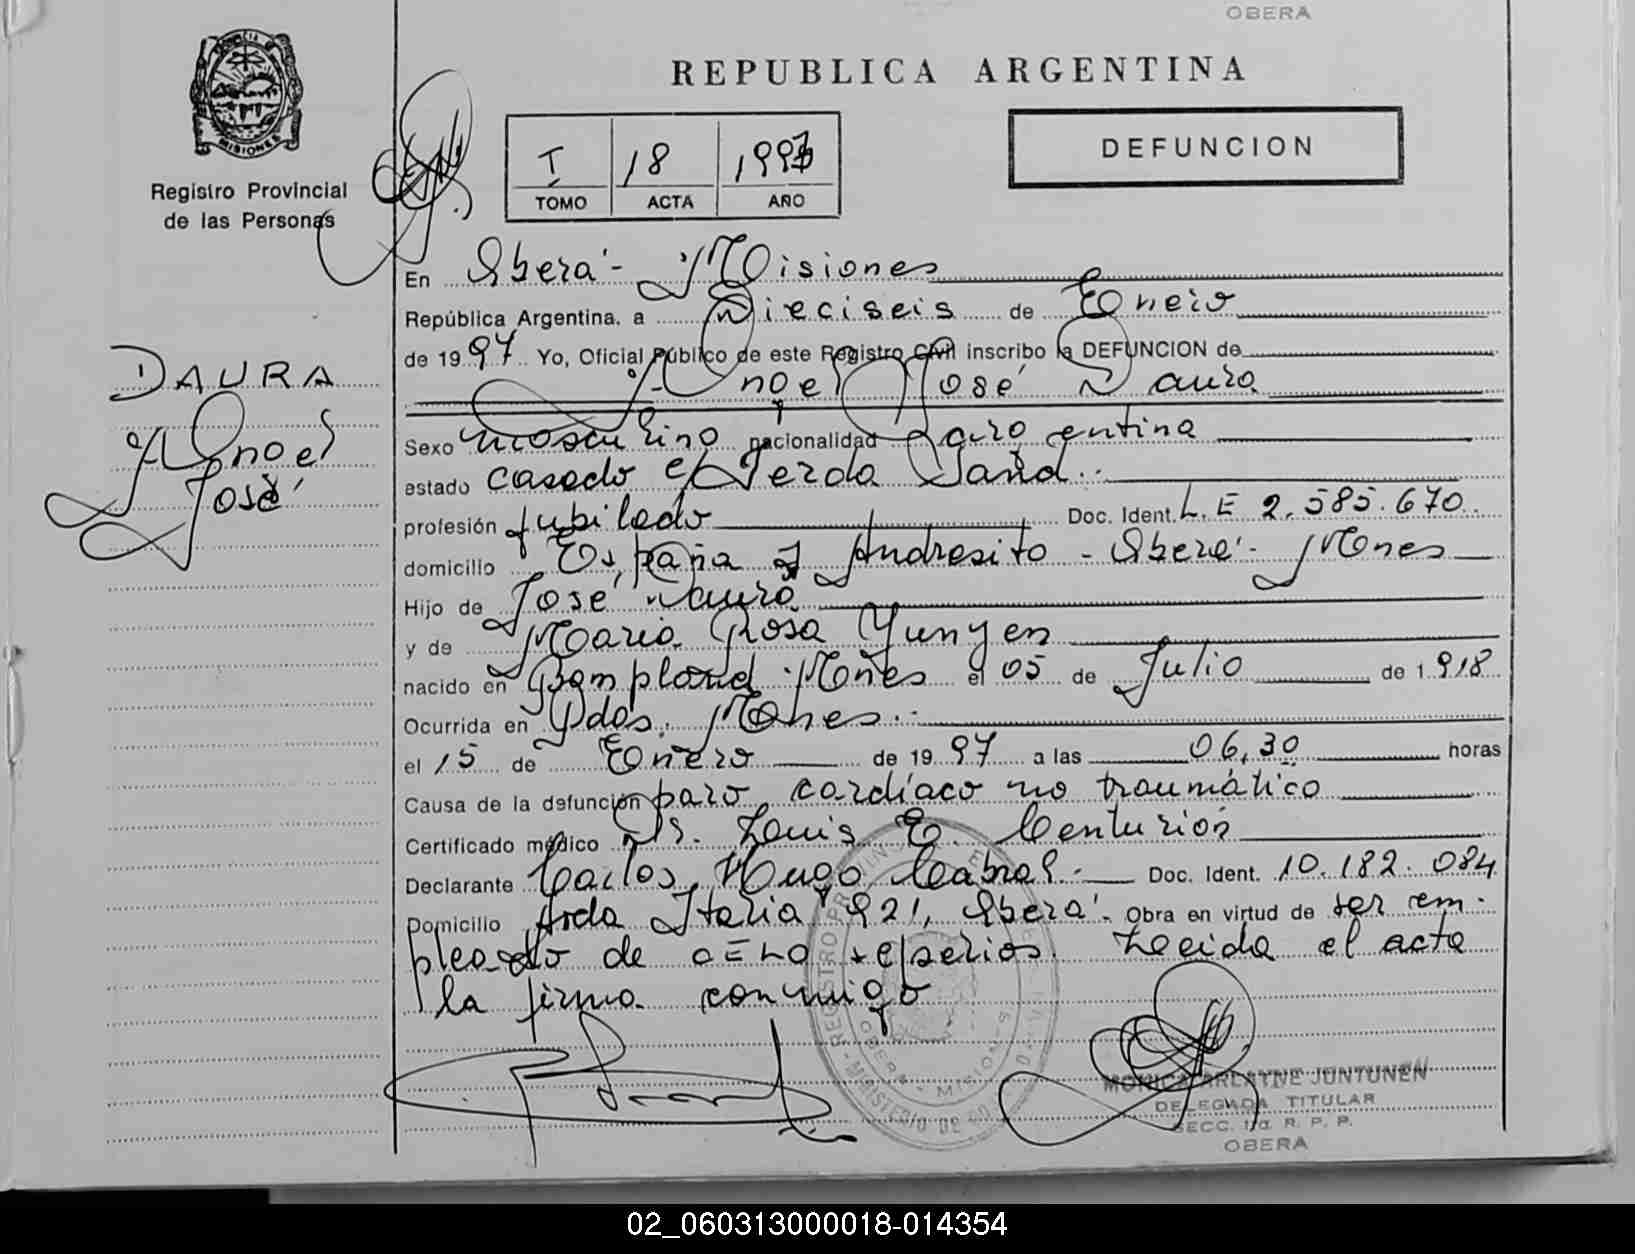 OBERA
REPUBLICA ARGENTINA
PROVINCIA DE MISIONES
Registro Provincial
de las Personas
I 18 1997
TOMO ACTA AÑO
DEFUNCION
En Oberá - Misiones
República Argentina, a Dieciseis de Enero
de 1997 Yo, Oficial Público de este Registro Civil inscribo la DEFUNCION de
Noel José Daura
DAURA
Noel
José
Sexo masculino nacionalidad argentina
estado casado c/
profesión jubilado Doc. Ident. L.E 2.585.670
domicilio España y Andresito - Oberá - Mnes
Hijo de José Daura
y de Maria Rosa Yunyen
nacido en Bompland Mnes el 05 de Julio de 1918
Ocurrida en Pdas. Mnes.
el 15 de Enero de 1997 a las 06,30 horas
Causa de la defunción paro cardíaco no traumático
Certificado médico Dr. Luis E. Centurión
Declarante Carlos Hugo Cabral Doc. Ident. 10.182.084
Domicilio Avda Italia 921, Oberá. Obra en virtud de ser em-
pleado de sepelios. Leida el acta
la firma conmigo
REGISTRO PROVINCIAL DE LAS PERSONAS
MINISTERIO DE GOBIERNO
OBERA - MISIONES
MONICA ARLAYNE JUNTUNEN
DELEGADA TITULAR
SECC. 1ra. R. P. P.
OBERA
02_060313000018-014354